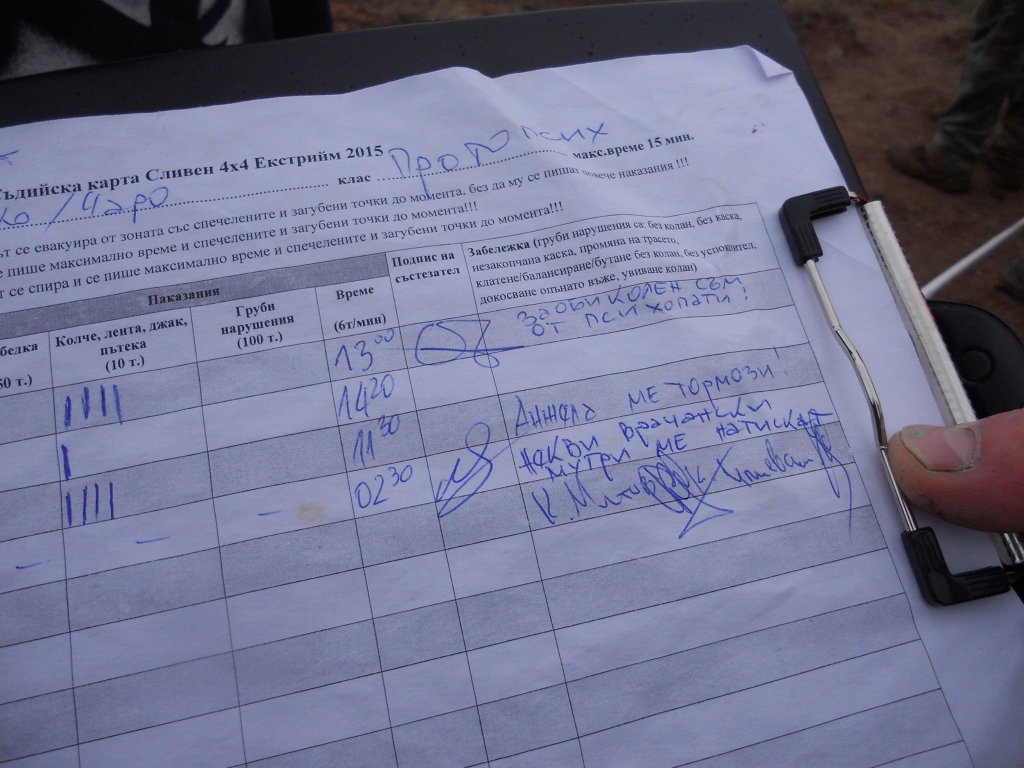 Съдийска карта Сливен 4x4 Екстрийм 2015
ко / Чаро клас Прото псих макс.време 15 мин.
ът се евакуира от зоната със спечелените и загубени точки до момента, без да му се пишат повече наказания !!!
е пише максимално време и спечелените и загубени точки до момента!!!
т се спира и се пише максимално време и спечелените и загубени точки до момента!!!
Наказания
Колче, лента, джак, пътека
(10 т.)
Груби
нарушения
(100 т.)
Време
(бт/мин)
Подпис на
състезател
Забележка (груби нарушения са: без колан, без каска,
незакопчана каска, промяна на трасето,
клатене/балансиране/бутане без колан, без успокоител,
докосване опънато въже, увиване колан)
13 00
ЗАОБИКОЛЕН СЪМ
ОТ ПСИХОПАТИ!
14 20
11 30
Анжела МЕ ТОРМОЗИ!
02 30
някви врачански
мутри ме натискат